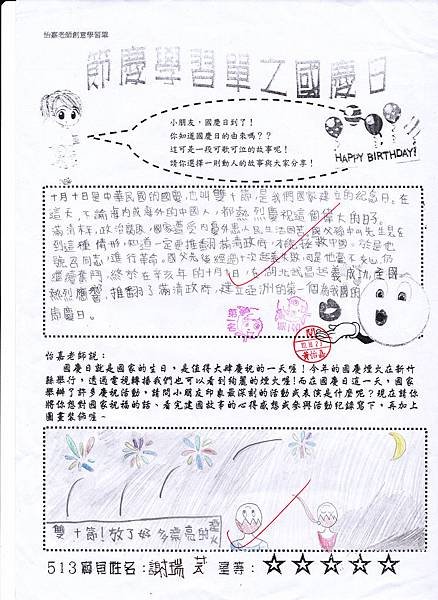 怡嘉老師創意學習單
節慶學習單之國慶日
小朋友，國慶日到了！
你知道國慶日的由來嗎？？
這可是一段可歌可泣的故事呢！
請你選擇一則動人的故事與大家分享！
HAPPY BIRTHDAY!
十月十日是中華民國的國慶，也叫雙十節，是我們國家建立的紀念日。在
這天，不論海內或海外的中國人，都熱烈慶祝這個偉大的日子。
滿清末年，政治腐敗，國家遭受內憂外患，人民生活困苦，國父孫中山先生見
到這種情形，知道一定要推翻滿清政府，才能拯救中國。於是他
號召同志，進行革命。國父先後經過十次起義失敗，可是他毫不灰心，仍
繼續奮鬥，終於在辛亥年的十月十日，在湖北武昌起義成功，全國
熱烈響應，推翻了滿清政府，建立亞洲的第一個為我國的
國慶日。
第一名
黃怡嘉
怡嘉老師說：
國慶日就是國家的生日，是值得大肆慶祝的一天喔！今年的國慶煙火在新竹
縣舉行，透過電視轉播我們也可以看到絢麗的煙火喔！而在國慶日這一天，國家
舉辦了許多慶祝活動，請問小朋友印象最深刻的活動或表演是什麼呢？現在請你
將你想對國家祝福的話、看完建國故事的心得感想或參與活動紀錄寫下，再加上
圖畫裝飾喔～
雙十節！放了好多漂亮的煙火
513 寶貝姓名：謝瑞芠 星等：☆☆☆☆☆